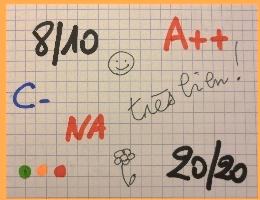 8/10
A++
très bien!
C-
NA
20/20